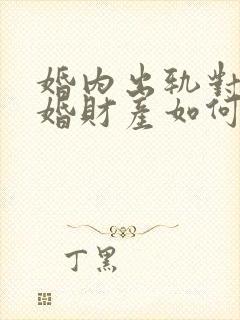 婚内出轨對
婚財産如何
丁黑